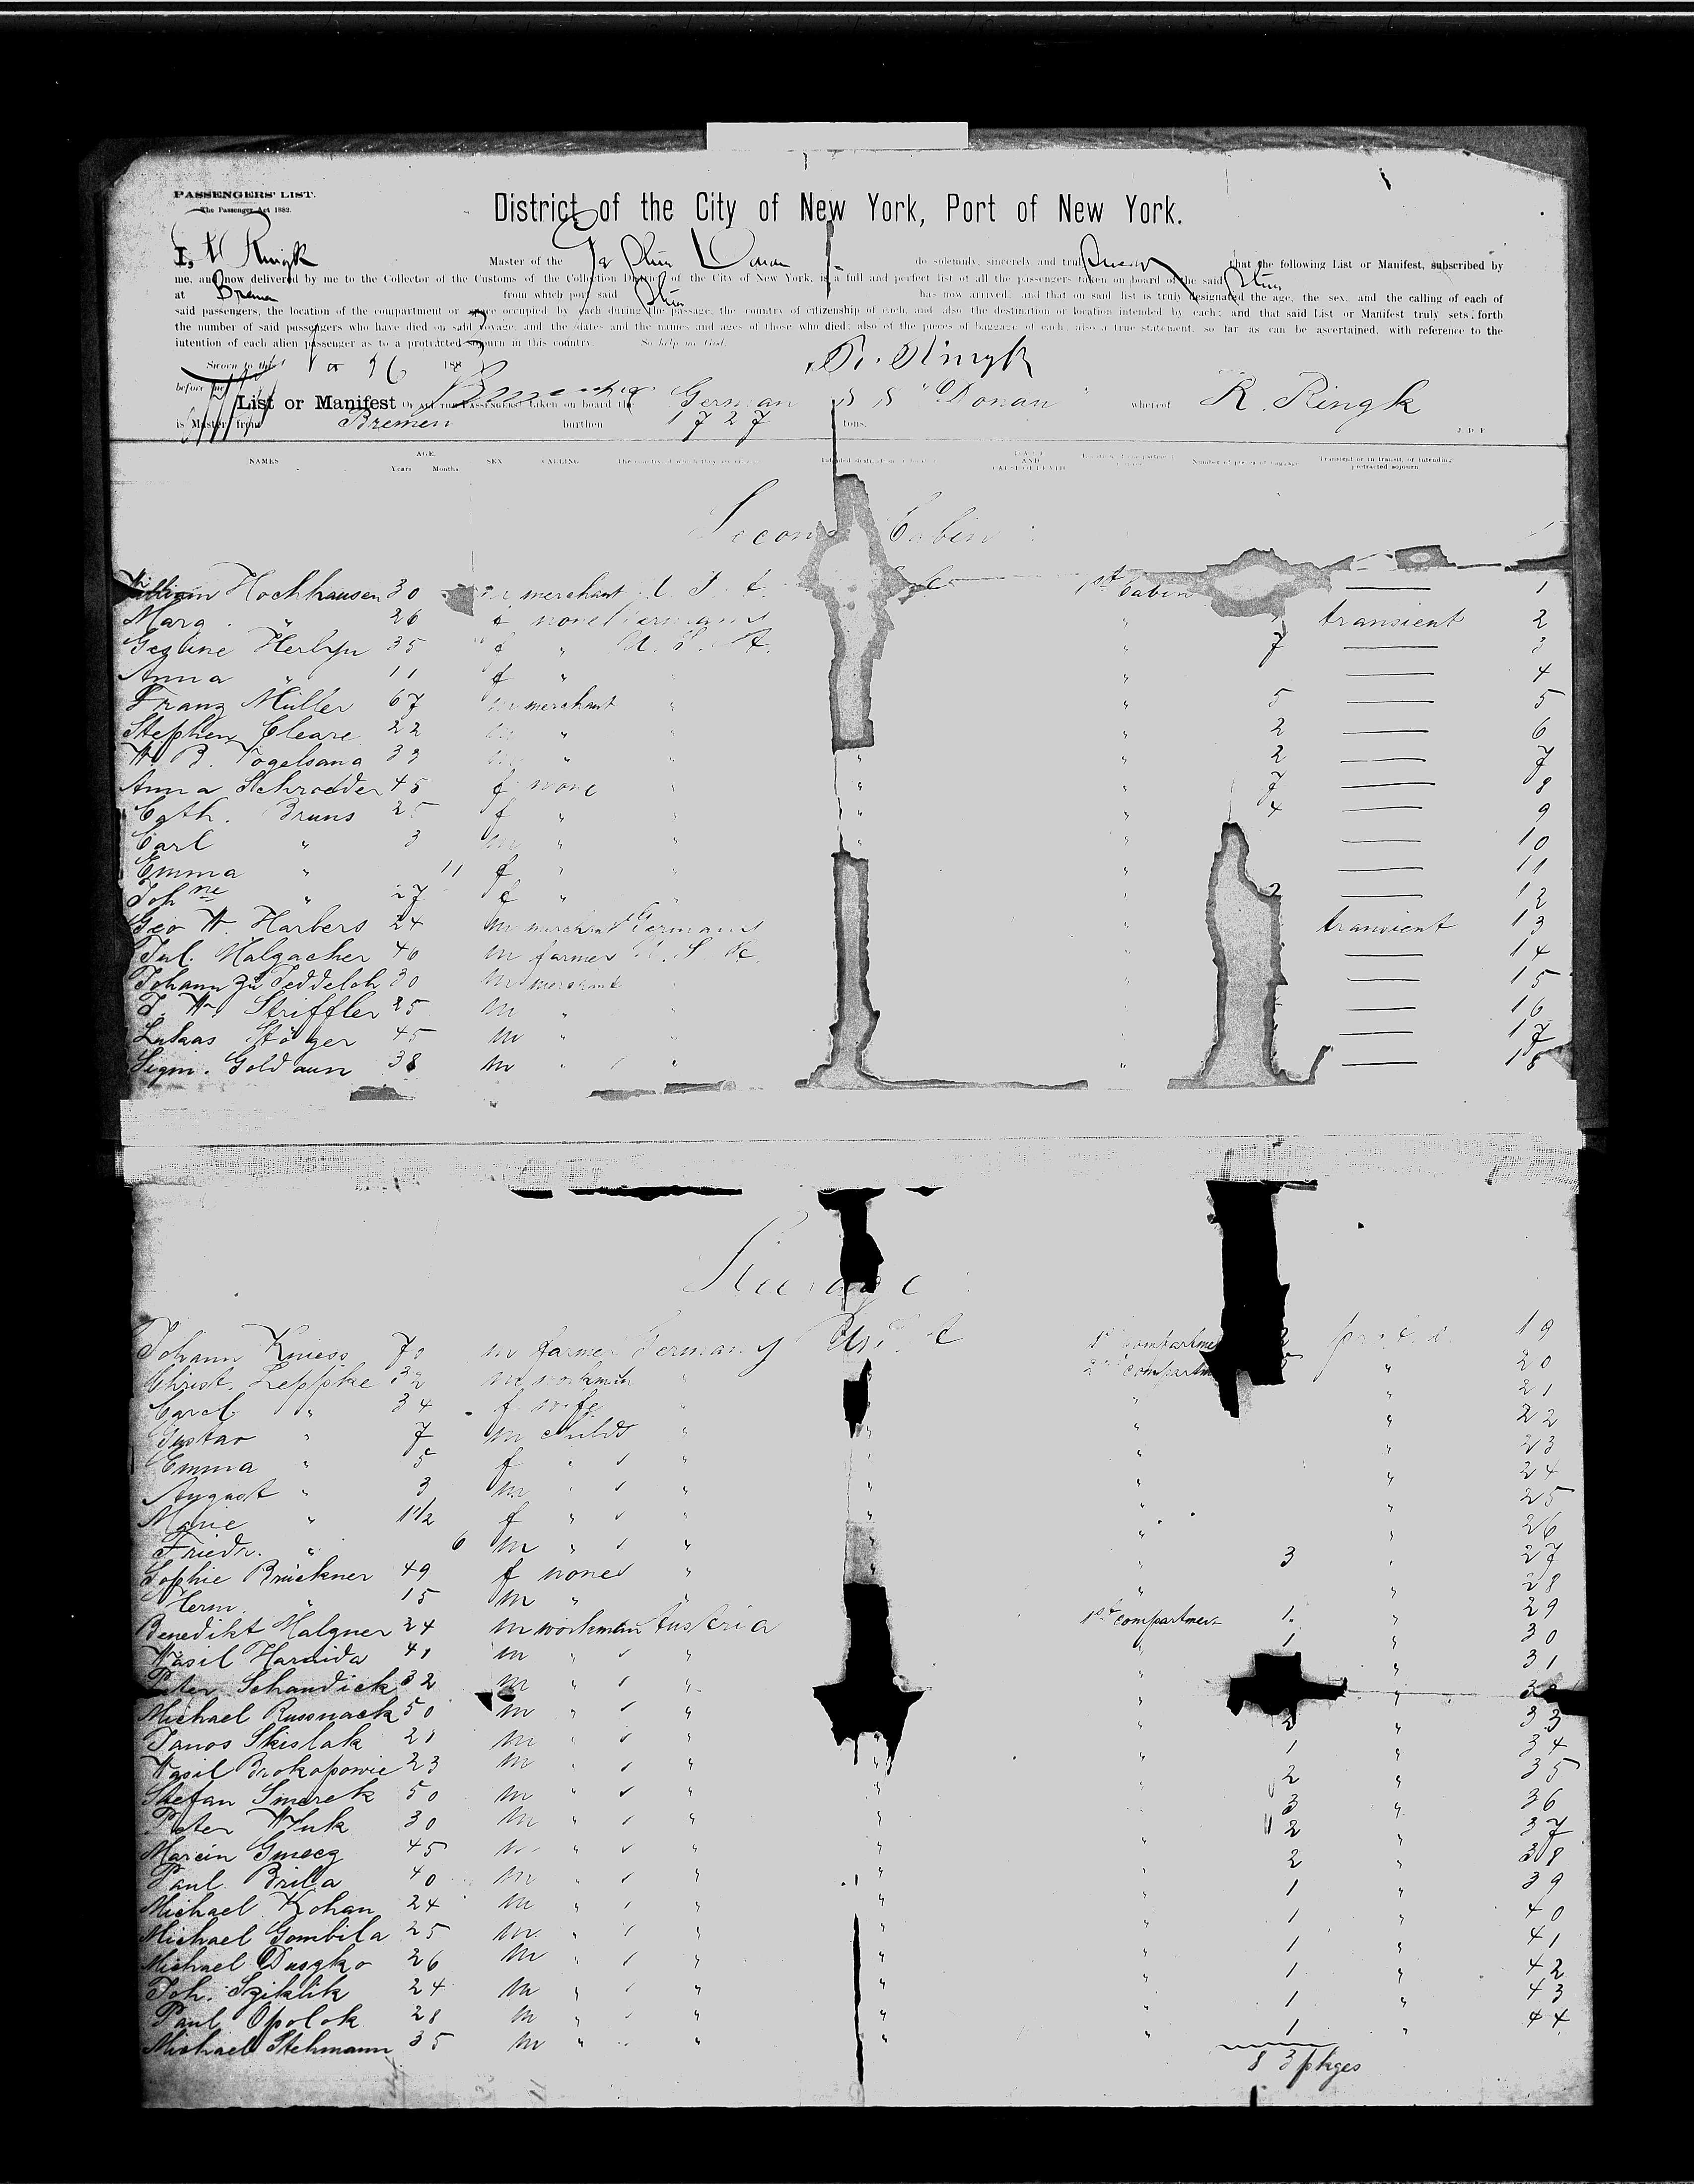 PASSENGERS' LIST.
The Passenger Act 1882.
District of the City of New York, Port of New York.
I, R Ringk Master of the Ger Stm Donau do solemnly, sincerely and truly swear that the following List or Manifest, subscribed by
me, and now delivered by me to the Collector of the Customs of the Collection District of the City of New York, is a full and perfect list of all the passengers taken on board of the said Stm
at Bremen from which port said Stm has now arrived; and that on said list is truly designated the age, the sex, and the calling of each of
said passengers, the location of the compartment or space occupied by each during the passage, the country of citizenship of each, and also the destination or location intended by each; and that said List or Manifest truly sets forth
the number of said passengers who have died on said voyage, and the dates and the names and ages of those who died; also of the pieces of baggage of each; also a true statement, so far as can be ascertained, with reference to the
intention of each alien passenger as to a protracted sojourn in this country. So help me God.
Sworn to this 188
R. Ringk
before me
List or Manifest OF ALL THE PASSENGERS taken on board the German S S "Donau" whereof R. Ringk
is Master, from Bremen burthen 1727 tons.
NAMES AGE. Years Months SEX CALLING The country of which they are citizens Intended destination or location DATE AND CAUSE OF DEATH Number of pieces of baggage Transient or in transit, or intending protracted sojourn
Second Cabin
William Hochhausen 30 merchant U. S. A. 1st Cabin 1
Marg. " 26 f none Germany " transient 2
Gesine Herlyn 35 f " U. S. A. " 7 3
Anna " 11 f " " 4
Franz Müller 67 m merchant " " 5 5
Stephen Cleare 22 m " " " 2 6
W. B. Vogelsang 33 m " " " " 2 7
Anna Schroeder 45 f none " " " 7 8
Cath. Bruns 25 f " " " " 4 9
Carl " 3 m " " " " 10
Emma " 11 f " " " 11
Johne " 27 f " " " 2 12
Geo W. Harbers 24 m merchant Germany " transient 13
Jul. Malgacher 46 m farmer U. S. A. " 14
Johann zu Jeddeloh 30 m merchant " " 15
J. W. Striffler 25 m " " " 16
Lukas Stöger 45 m " " " 17
Sigm. Goldaun 38 m " " " 18
Steerage
Johann Kniess 70 m farmer Germany U. S. A 1st compartment 2 19
Christ. Leppke 32 m workman " 2nd compartm 5 " 20
Carol. " 34 f wife " " " 21
Gustav " 7 m childs " " " " 22
Emma " 5 f " " " " " 23
August " 3 m " " " " " 24
Marie " 1 1/2 f " " " " " 25
Friedr. " 6 m " " " " " 26
Sophie Brückner 49 f none " " " 3 " 27
Herm. " 15 m " " " " 28
Benedikt Malgner 24 m workman Austria 1st compartment 1. " 29
Wasil Haraida 41 m " " " 1 " 30
Peter Schandick 32 m " " " " 31
Michael Russnack 50 m " " " " 32
Janos Skislak 21 m " " " " 2 " 33
Wasil Prokopowie 23 m " " " " 1 " 34
Stefan Smerek 50 m " " " " 2 " 35
Peter Wluk 30 m " " " " 3 " 36
Marcin Gmecz 45 m " " " " 2 " 37
Paul Brila 40 m " " " " 2 " 38
Michael Kohan 24 m " " " " 1 " 39
Michael Gombila 25 m " " " " 1 " 40
Michael Duszko 26 m " " " " 1 " 41
Joh. Sziklik 24 m " " " " 1 " 42
Paul Opolok 28 m " " " " 1 " 43
Michael Stehmann 35 m " " " " 1 " 44
83 pkges